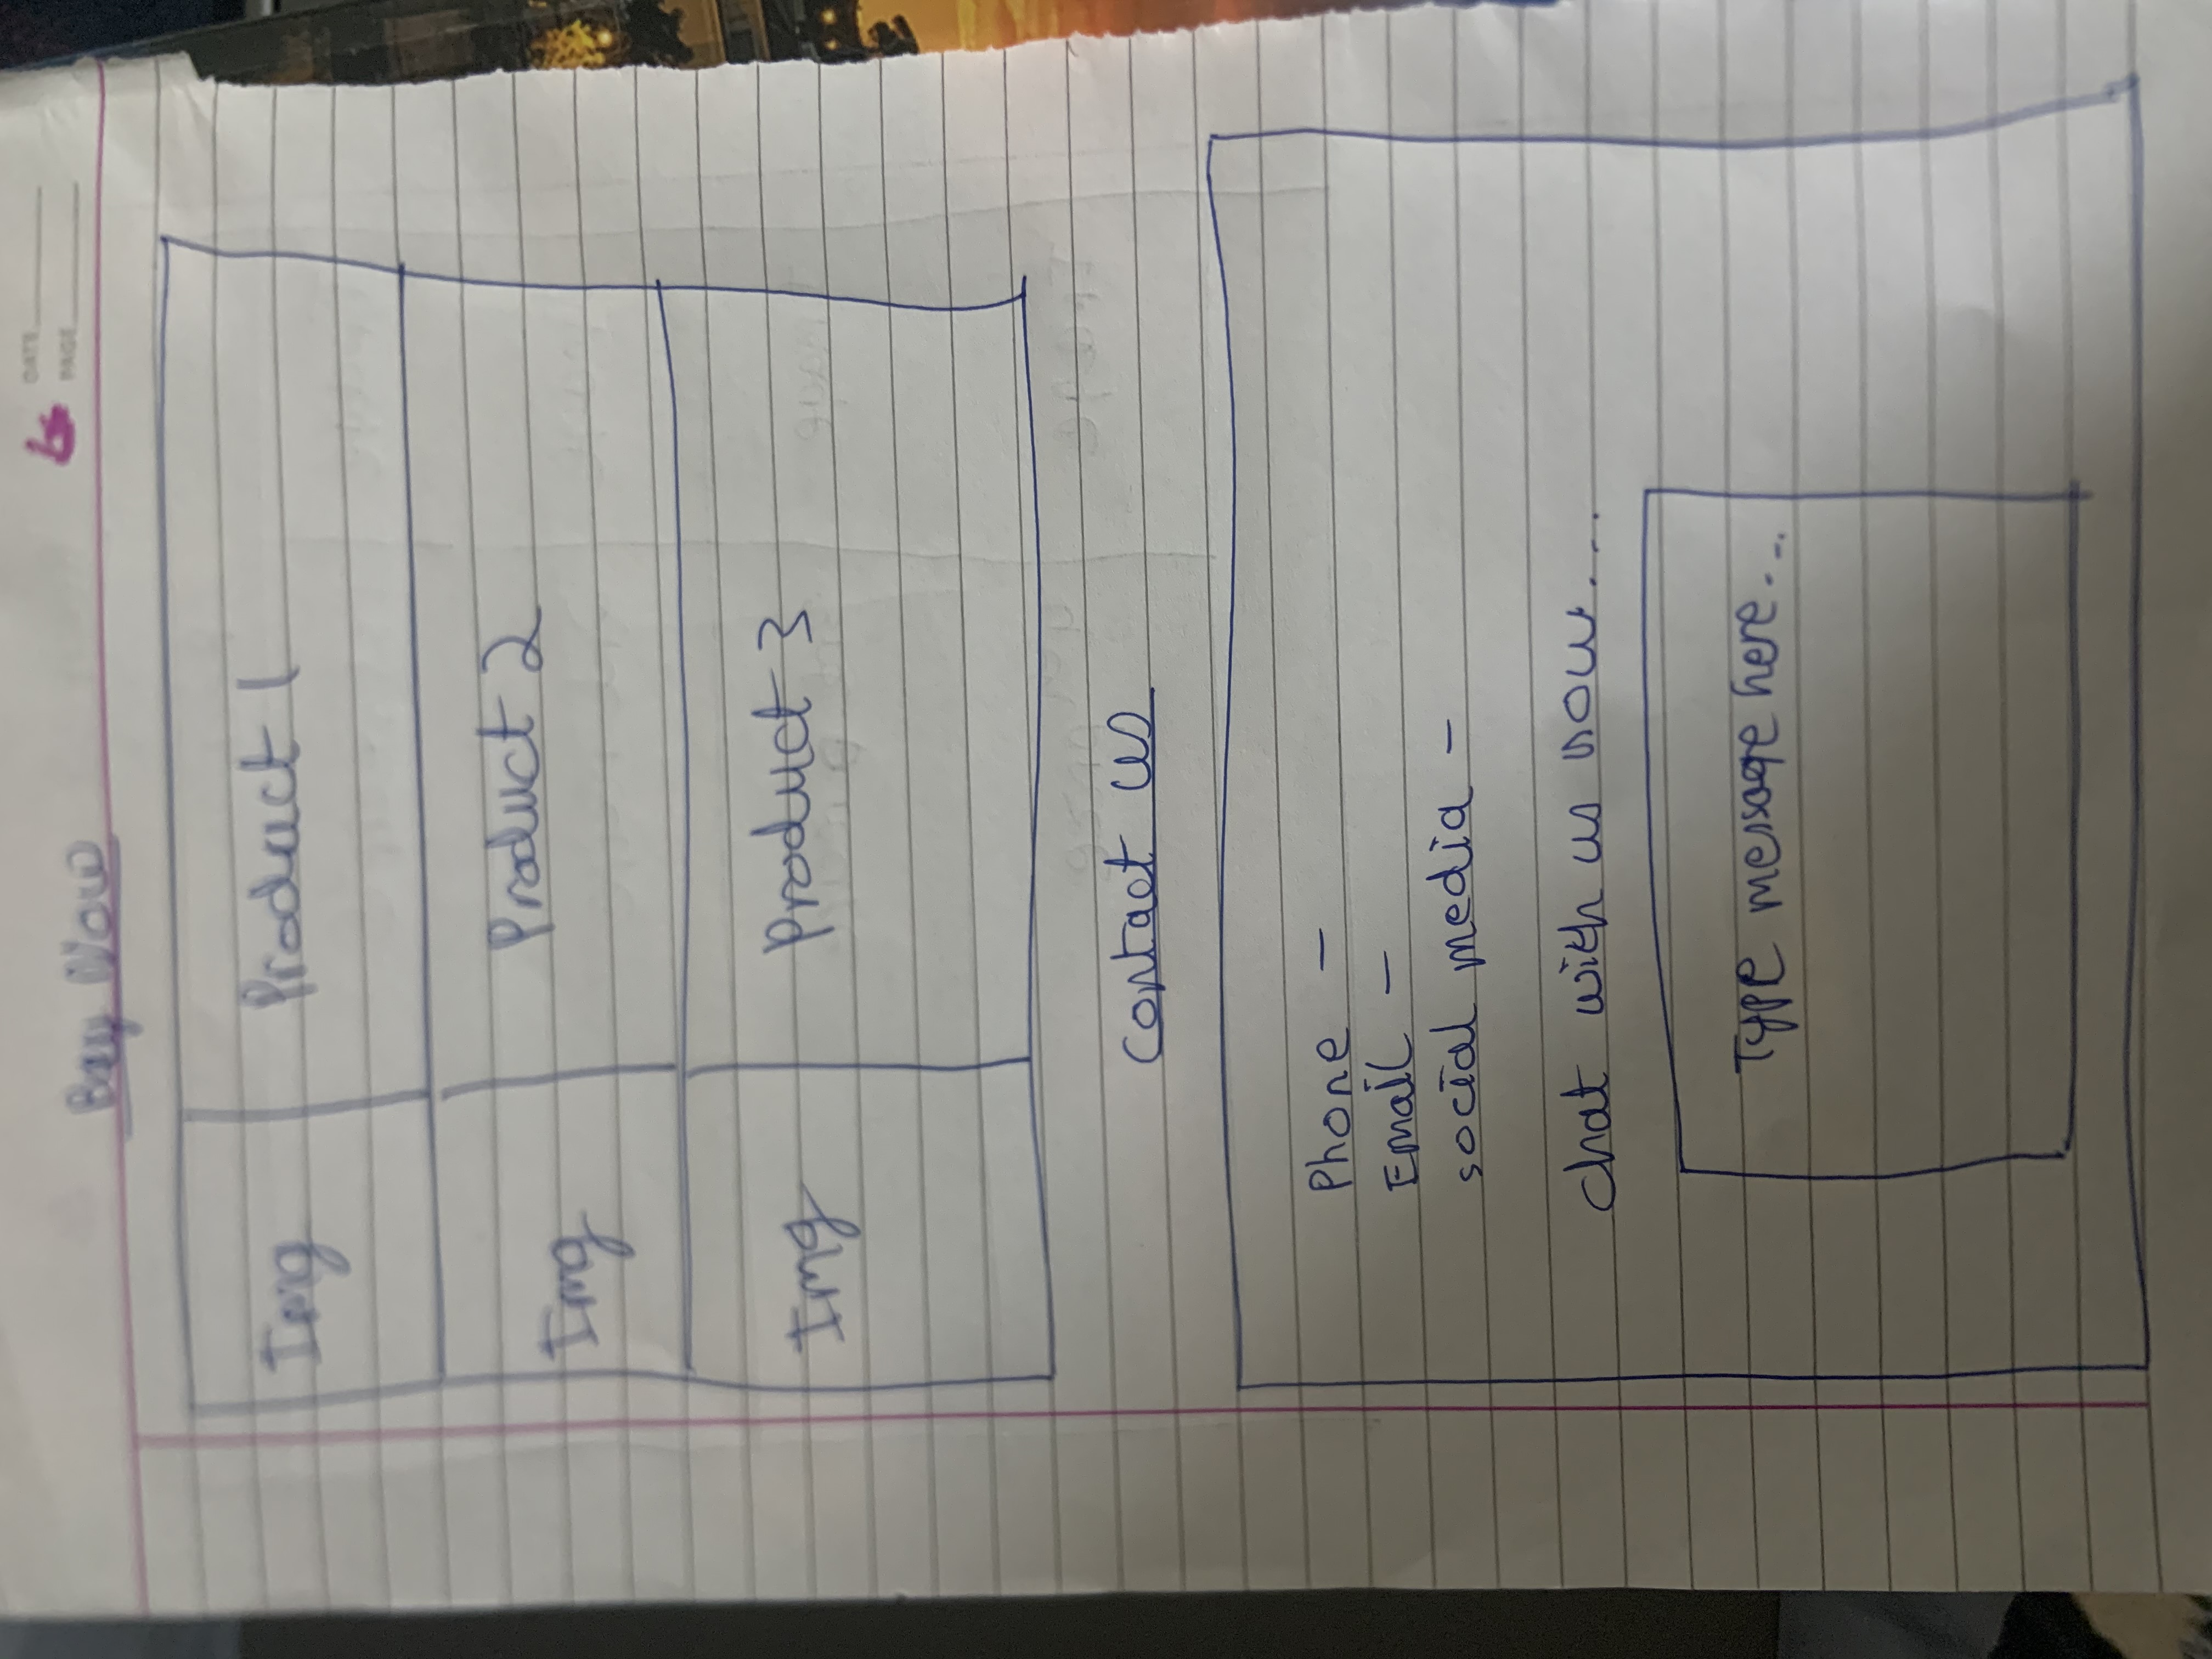 DATE
PAGE
Buy Now
Img
Product 1
Img
Product 2
Img
Product 3
Contact us
Phone -
Email -
social media -
Chat with us now....
Type message here....